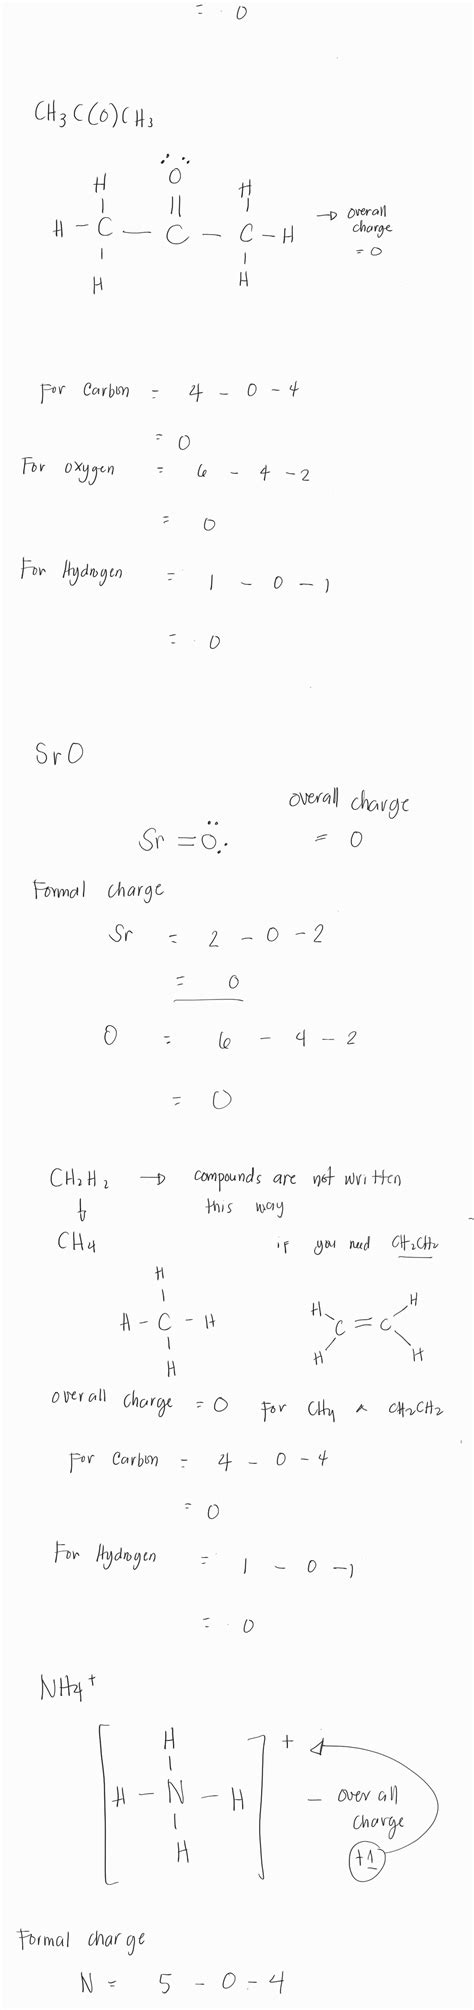 = 0
CH3C(O)CH3
H O H
H - C - C - C - H
H H
→ overall
charge
= 0
For Carbon = 4 - 0 - 4
= 0
For oxygen = 6 - 4 - 2
= 0
For Hydrogen = 1 - 0 - 1
= 0
SrO
overall charge
Sr = O = 0
Formal charge
Sr = 2 - 0 - 2
= 0
O = 6 - 4 - 2
= 0
CH2H2 → compounds are not written
↓ this way
CH4 if you need CH2CH2
H
H - C - H
H
H H
C = C
H H
overall charge = 0 for CH4 & CH2CH2
For Carbon = 4 - 0 - 4
= 0
For Hydrogen = 1 - 0 - 1
= 0
NH4+
H +
H - N - H - over all
H charge
+1
Formal charge
N = 5 - 0 - 4